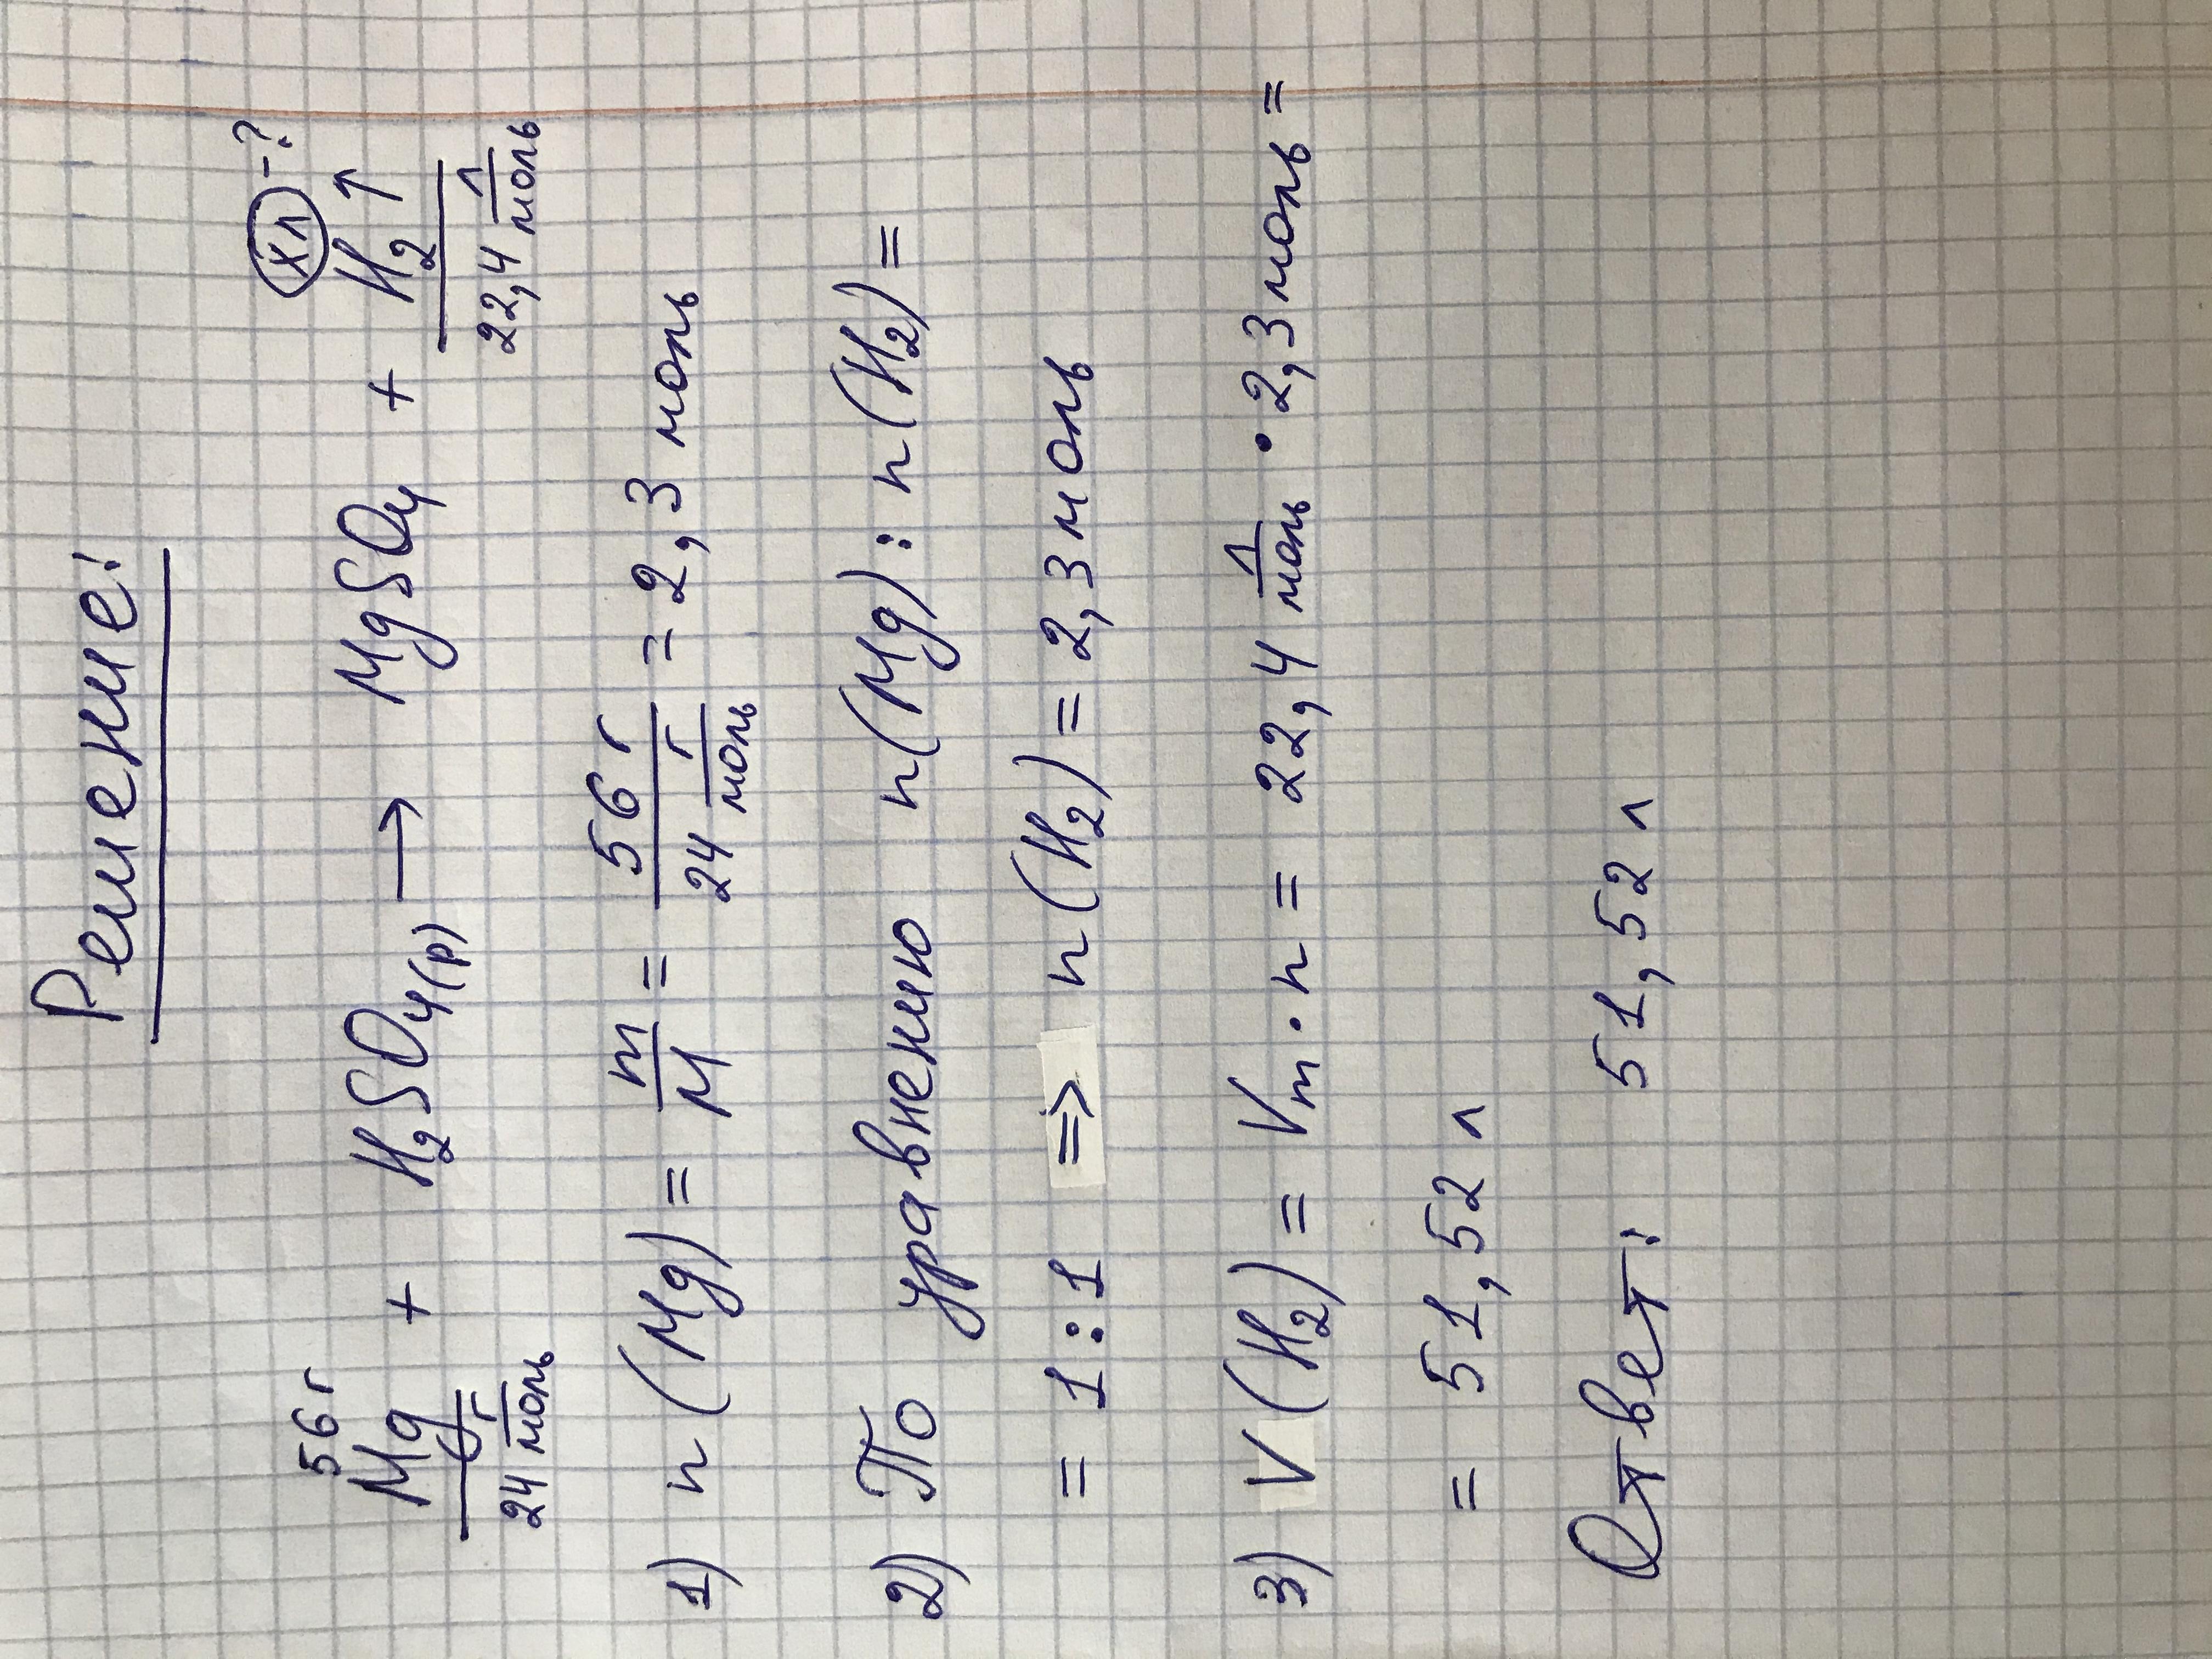 Решение:
xл -?
56 г
Mg + H₂SO₄(р) → MgSO₄ + H₂↑
24 г/моль 22,4 л/моль
1) n (Mg) = m/M = 56 г / 24 г/моль = 2,3 моль
2) По уравнению n(Mg) : n(H₂) =
= 1 : 1 => n(H₂) = 2,3 моль
3) V (H₂) = Vm · n = 22,4 л/моль · 2,3 моль =
= 51,52 л
Ответ: 51,52 л